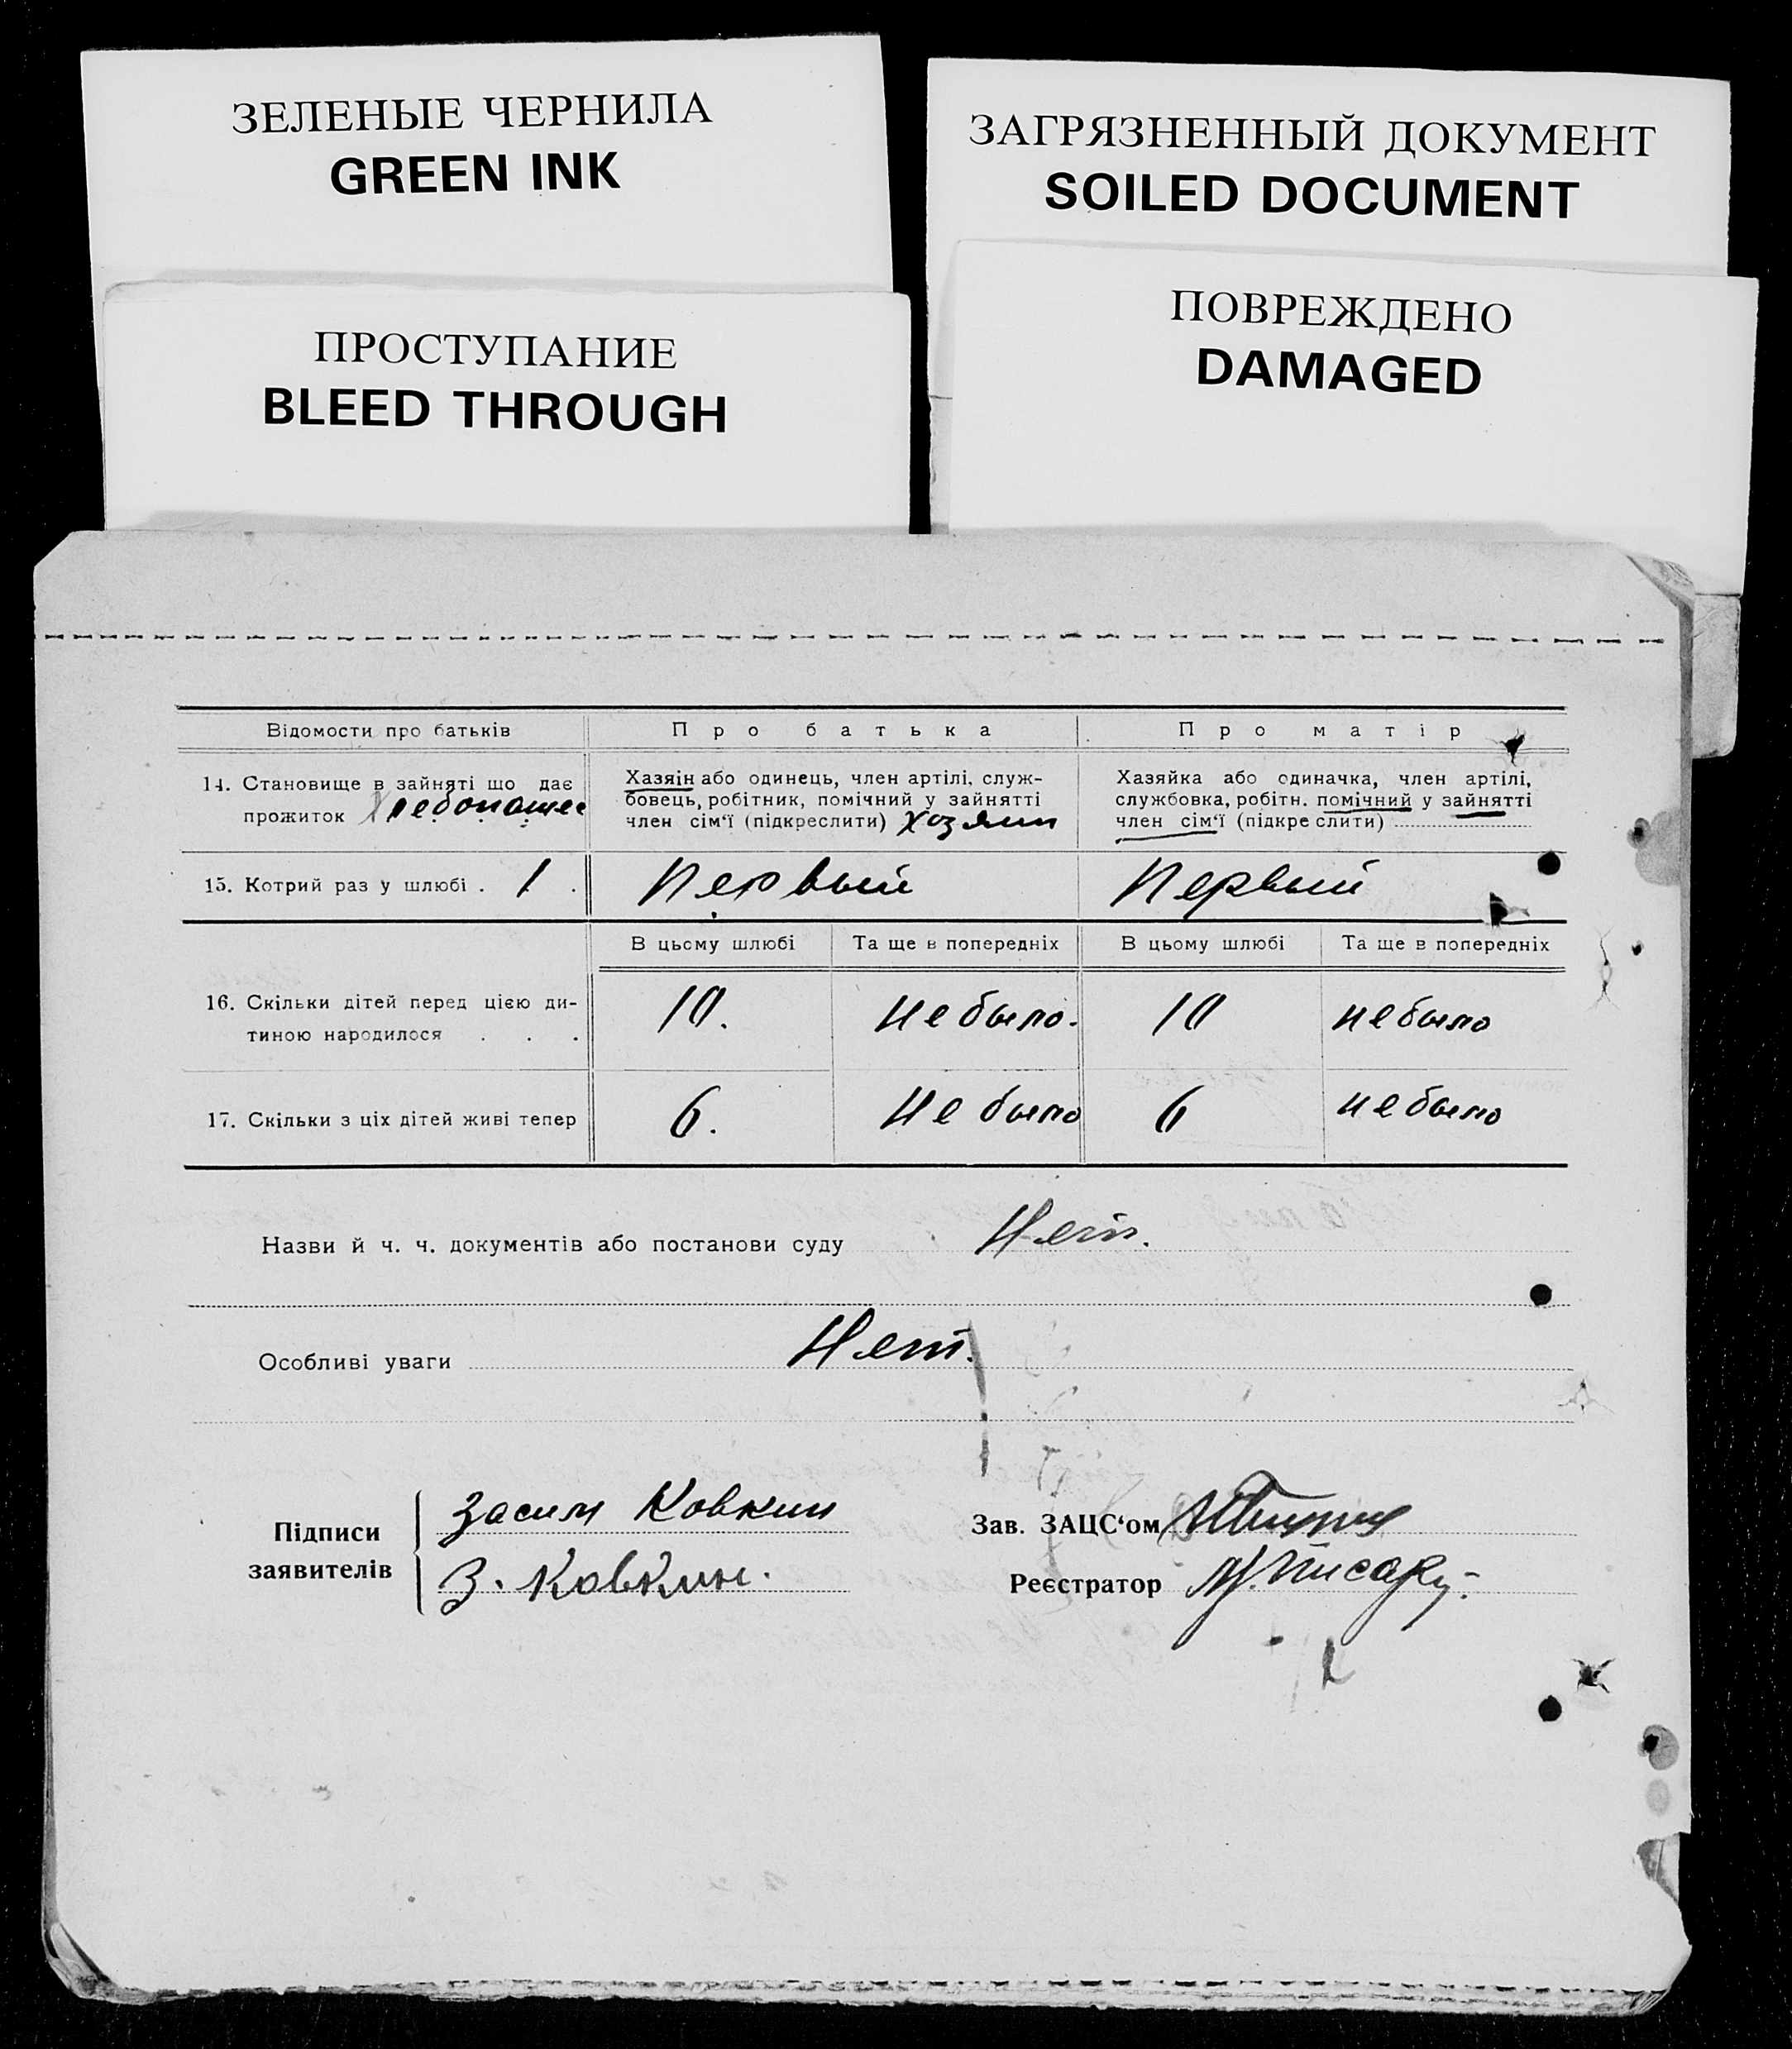 ЗЕЛЕНЫЕ ЧЕРНИЛА
GREEN INK
ПРОСТУПАНИЕ
BLEED THROUGH
ЗАГРЯЗНЕННЫЙ ДОКУМЕНТ
SOILED DOCUMENT
ПОВРЕЖДЕНО
DAMAGED
Відомости про батьків
Про батька
Про матір
14. Становище в зайняті що дає
прожиток Хлебопашес
Хазяін або одинець, член артілі, служ-
бовець, робітник, помічний у зайнятті
член сім'ї (підкреслити) хозяин
Хазяйка або одиначка, член артілі,
службовка, робітн. помічний у зайнятті
член сім'ї (підкреслити)
15. Котрий раз у шлюбі . 1 .
Первый
Первый
В цьому шлюбі
Та ще в попередніх
В цьому шлюбі
Та ще в попередніх
16. Скільки дітей перед цією ди-
тиною народилося . . .
10.
не было.
10
не было
17. Скільки з ціх дітей живі тепер
6.
не было
6
не было
Назви й ч. ч. документів або постанови суду Нет.
Особливі уваги Нет.
Підписи
заявителів
Засим Ковкин
З. Ковкин.
Зав. ЗАЦС'ом
Реєстратор